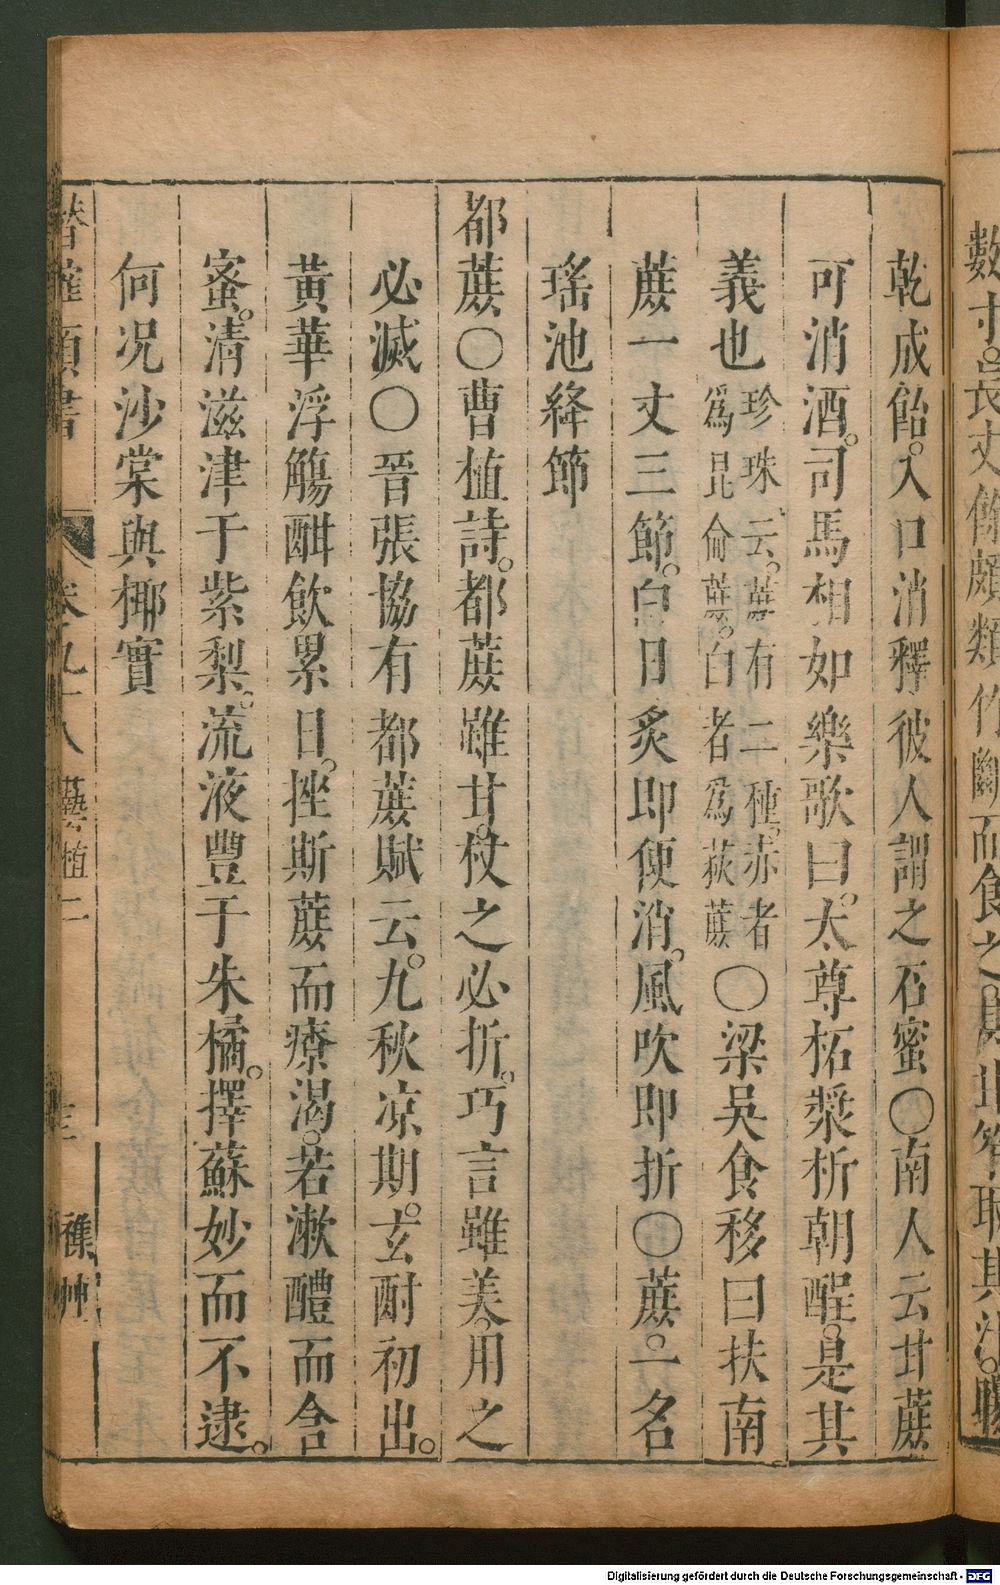 乾成飴。入口消釋彼人謂之石蜜〇南人云甘蔗
可消酒。司馬相如樂歌曰。太尊柘漿析朝酲。是其
義也珍珠云。蔗有二種。赤者爲昆侖蔗。白者爲荻蔗〇梁吳食移曰扶南
蔗一丈三節。白日炙即便消。風吹即折〇蔗。一名
瑤池絳節
都蔗〇曹植詩。都蔗雖甘。杖之必折。巧言雖美。用之
必滅〇晉張協有都蔗賦云。九秋凉期。玄酎初出。
黃華浮觴酣飲累日。挫斯蔗而療渴。若漱醴而含
蜜。清滋津于紫梨。流液豐于朱橘。擇蘇妙而不逮。
何况沙棠與椰實
卷九十八 藝植二 三 雜艸
Digitalisierung gefördert durch die Deutsche Forschungsgemeinschaft - DFG